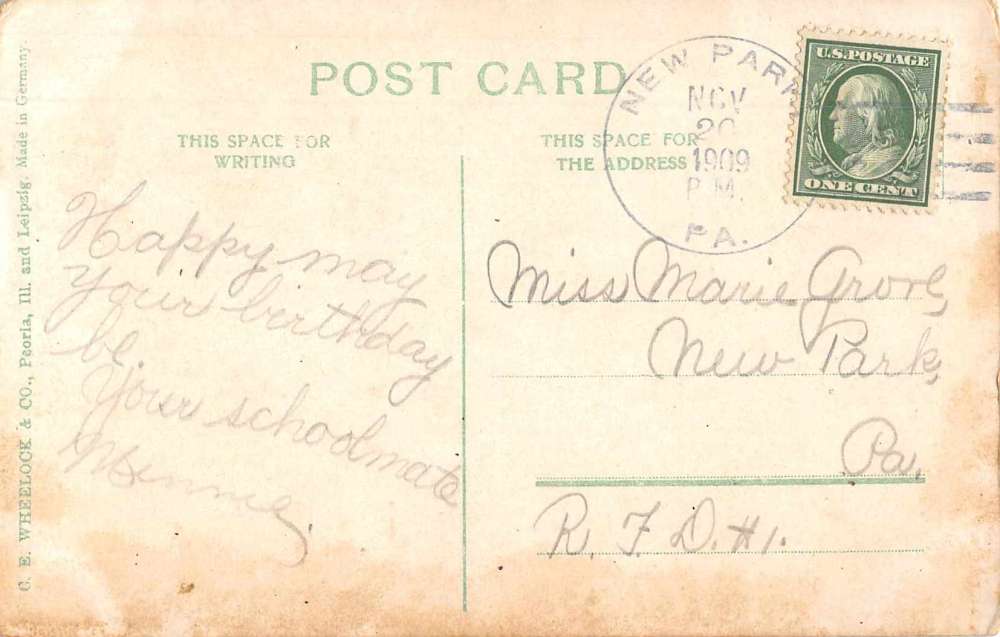 POST CARD
THIS SPACE FOR
WRITING
THIS SPACE FOR
THE ADDRESS
NEW PARK
NOV
20
1909
P.M.
PA.
U.S. POSTAGE
ONE CENT
Happy may
your birthday
be.
Your schoolmate
Minnie.
Miss Marie Grove,
New Park,
Pa.
R. F. D. #1.
C. E. WHEELOCK & CO., Peoria, Ill. and Leipzig. Made in Germany.